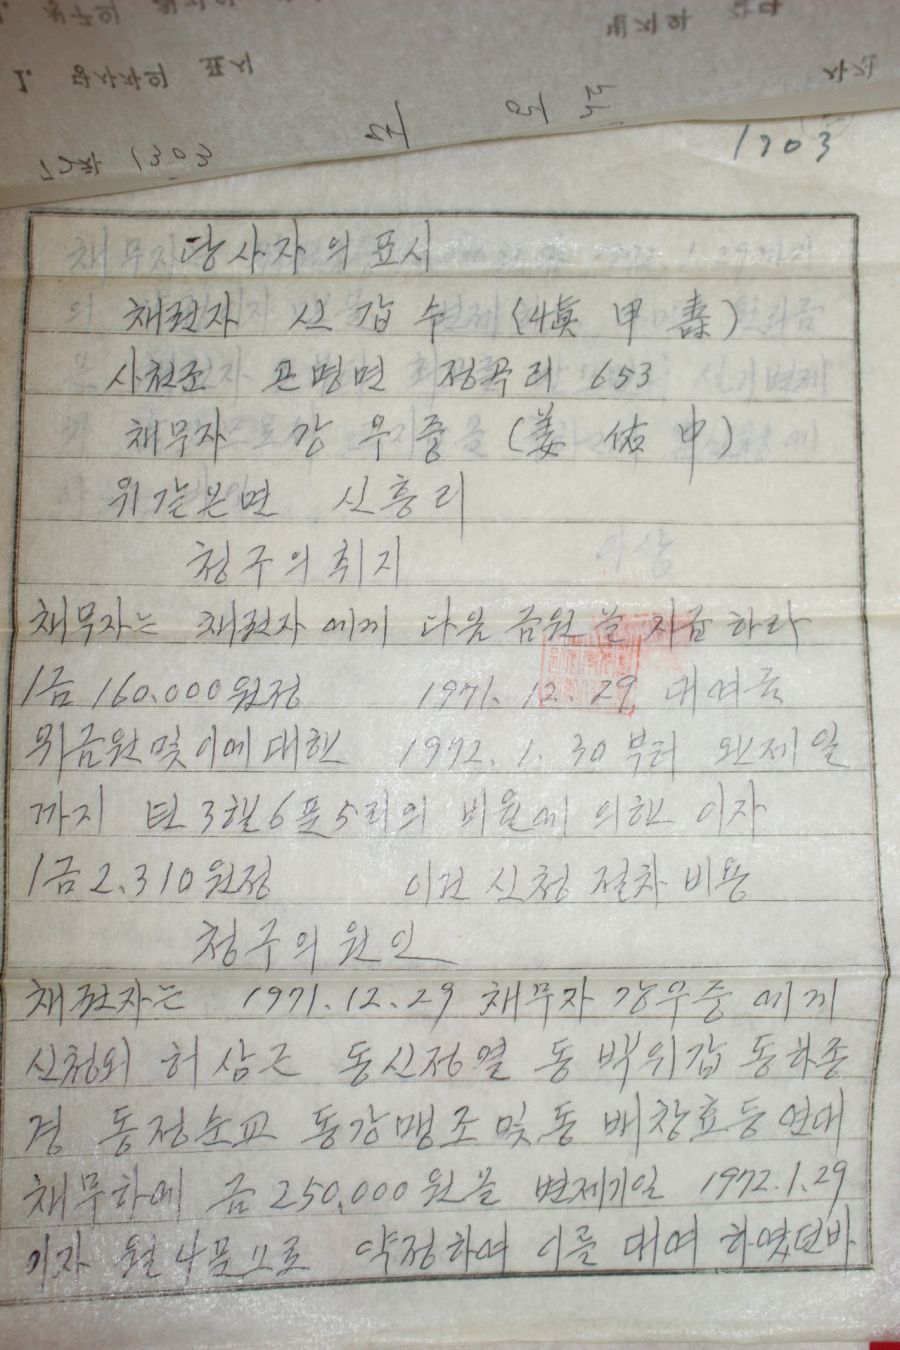 1303
당사자의표시
채권자 신갑수 (愼甲壽)
사천군 곤명면 정곡리 653
채무자 강우중 (姜佑中)
위같은면 신흥리
청구의취지
채무자는 채권자에게 다음 금원을 지급하라
1금 160,000원정 1971. 12. 29 대여금
위금원및이에대한 1972. 1. 30부터 완제일
까지 년3할6푼5리의 비율에 의한 이자
1금2,310원정 이건 신청 절차 비용
청구의원인
채권자는 1971.12.29 채무자 강우중에게
신청외 허삼근 동신정열 동박위갑 동하종
경 동정순교 동강맹조및동배창효등 연대
채무하에 금250,000원을 변제기일 1972.1.29
이자 월4푼으로 약정하여 이를 대여하였던바